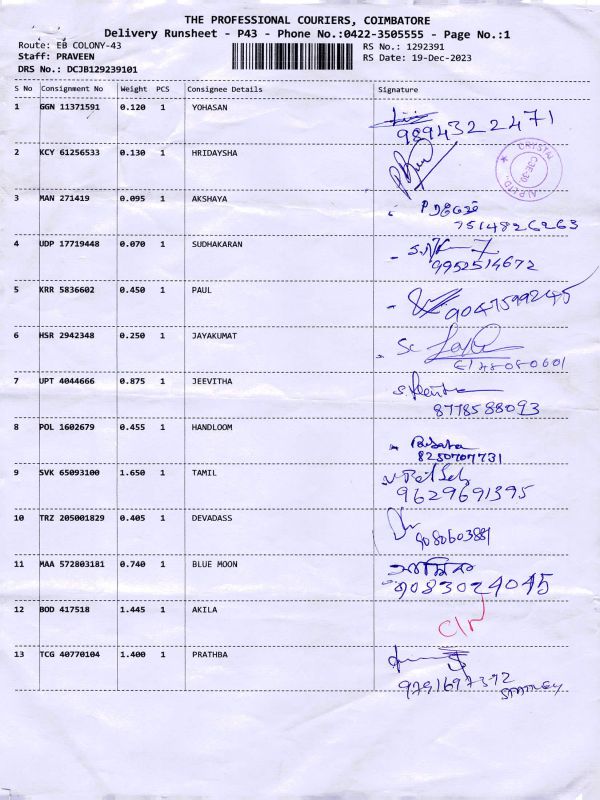 THE PROFESSIONAL COURIERS, COIMBATORE
Delivery Runsheet - P43 - Phone No.:0422-3505555 - Page No.:1
Route: EB COLONY-43
RS No.: 1292391
Staff: PRAVEEN
RS Date: 19-Dec-2023
DRS No.: DCJB129239101
S No Consignment No Weight PCS Consignee Details Signature
1 GGN 11371591 0.120 1 YOHASAN
9894322471
2 KCY 61256533 0.130 1 HRIDAYSHA
CRYSTAL
3 MAN 271419 0.095 1 AKSHAYA
7514826263
4 UDP 17719448 0.070 1 SUDHAKARAN
9952514672
5 KRR 5836602 0.450 1 PAUL
9047599245
6 HSR 2942348 0.250 1 JAYAKUMAT
7 UPT 4044666 0.875 1 JEEVITHA
8778588093
8 POL 1602679 0.455 1 HANDLOOM
8250707731
9 SVK 65093100 1.650 1 TAMIL
9629691395
10 TRZ 205001829 0.405 1 DEVADASS
9080603881
11 MAA 572803181 0.740 1 BLUE MOON
9083024045
12 BOD 417518 1.445 1 AKILA
13 TCG 40770104 1.400 1 PRATHBA
9791697372
STANLEY